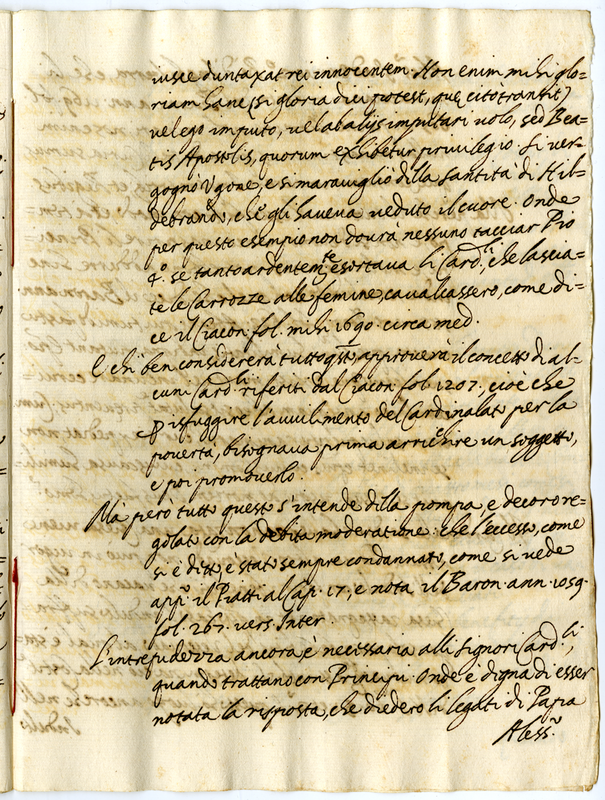 iusce duntaxat rei innocentem. Non enim mihi glo=
riam hanc (si gloria dici potest, quę cito transit)
vel ego imputo, vel ab alijs imputari volo, sed Bea=
tis Apostolis, quorum exhibetur privilegio. Si ver=
gognò Vgone, e si maravigliò dilla santità di Hil=
debrando, che gli haveva veduto il cuore. Onde
per questo esempio non dovrà nessuno tacciar Pio
4º. se tanto ardentem.te esortava li Card.li, che lascia=
te le Carrozze alle femine, cavalcassero, come di=
ce il Ciacon. fol. mihi 1690. circa med.
E chi ben considererà tutto qsto, approverà il concetto di al=
cuni Card.li riferiti dal Ciacon. fol. 1207. cioè che
p isfuggire l'avvilimento del Cardinalato per la
povertà, bisognava prima arricchire un soggetto,
e poi promoverlo.
Mà però tutto questo s'intende dilla pompa, e decoro re=
golato con la debita moderatione: che l'eccesso, come
si è ditto, è stato sempre condannato, come si vede
app.o il Piatti al Cap. 17., e nota il Baron. ann. 1059.
fol. 267. vers. Inter.
L'intrepidezza ancora, è necessaria alli Signori Card.li,
quando trattano con Principi. Onde è digna di esser
notata la risposta, che diedero li legati di Papa
Aless.o